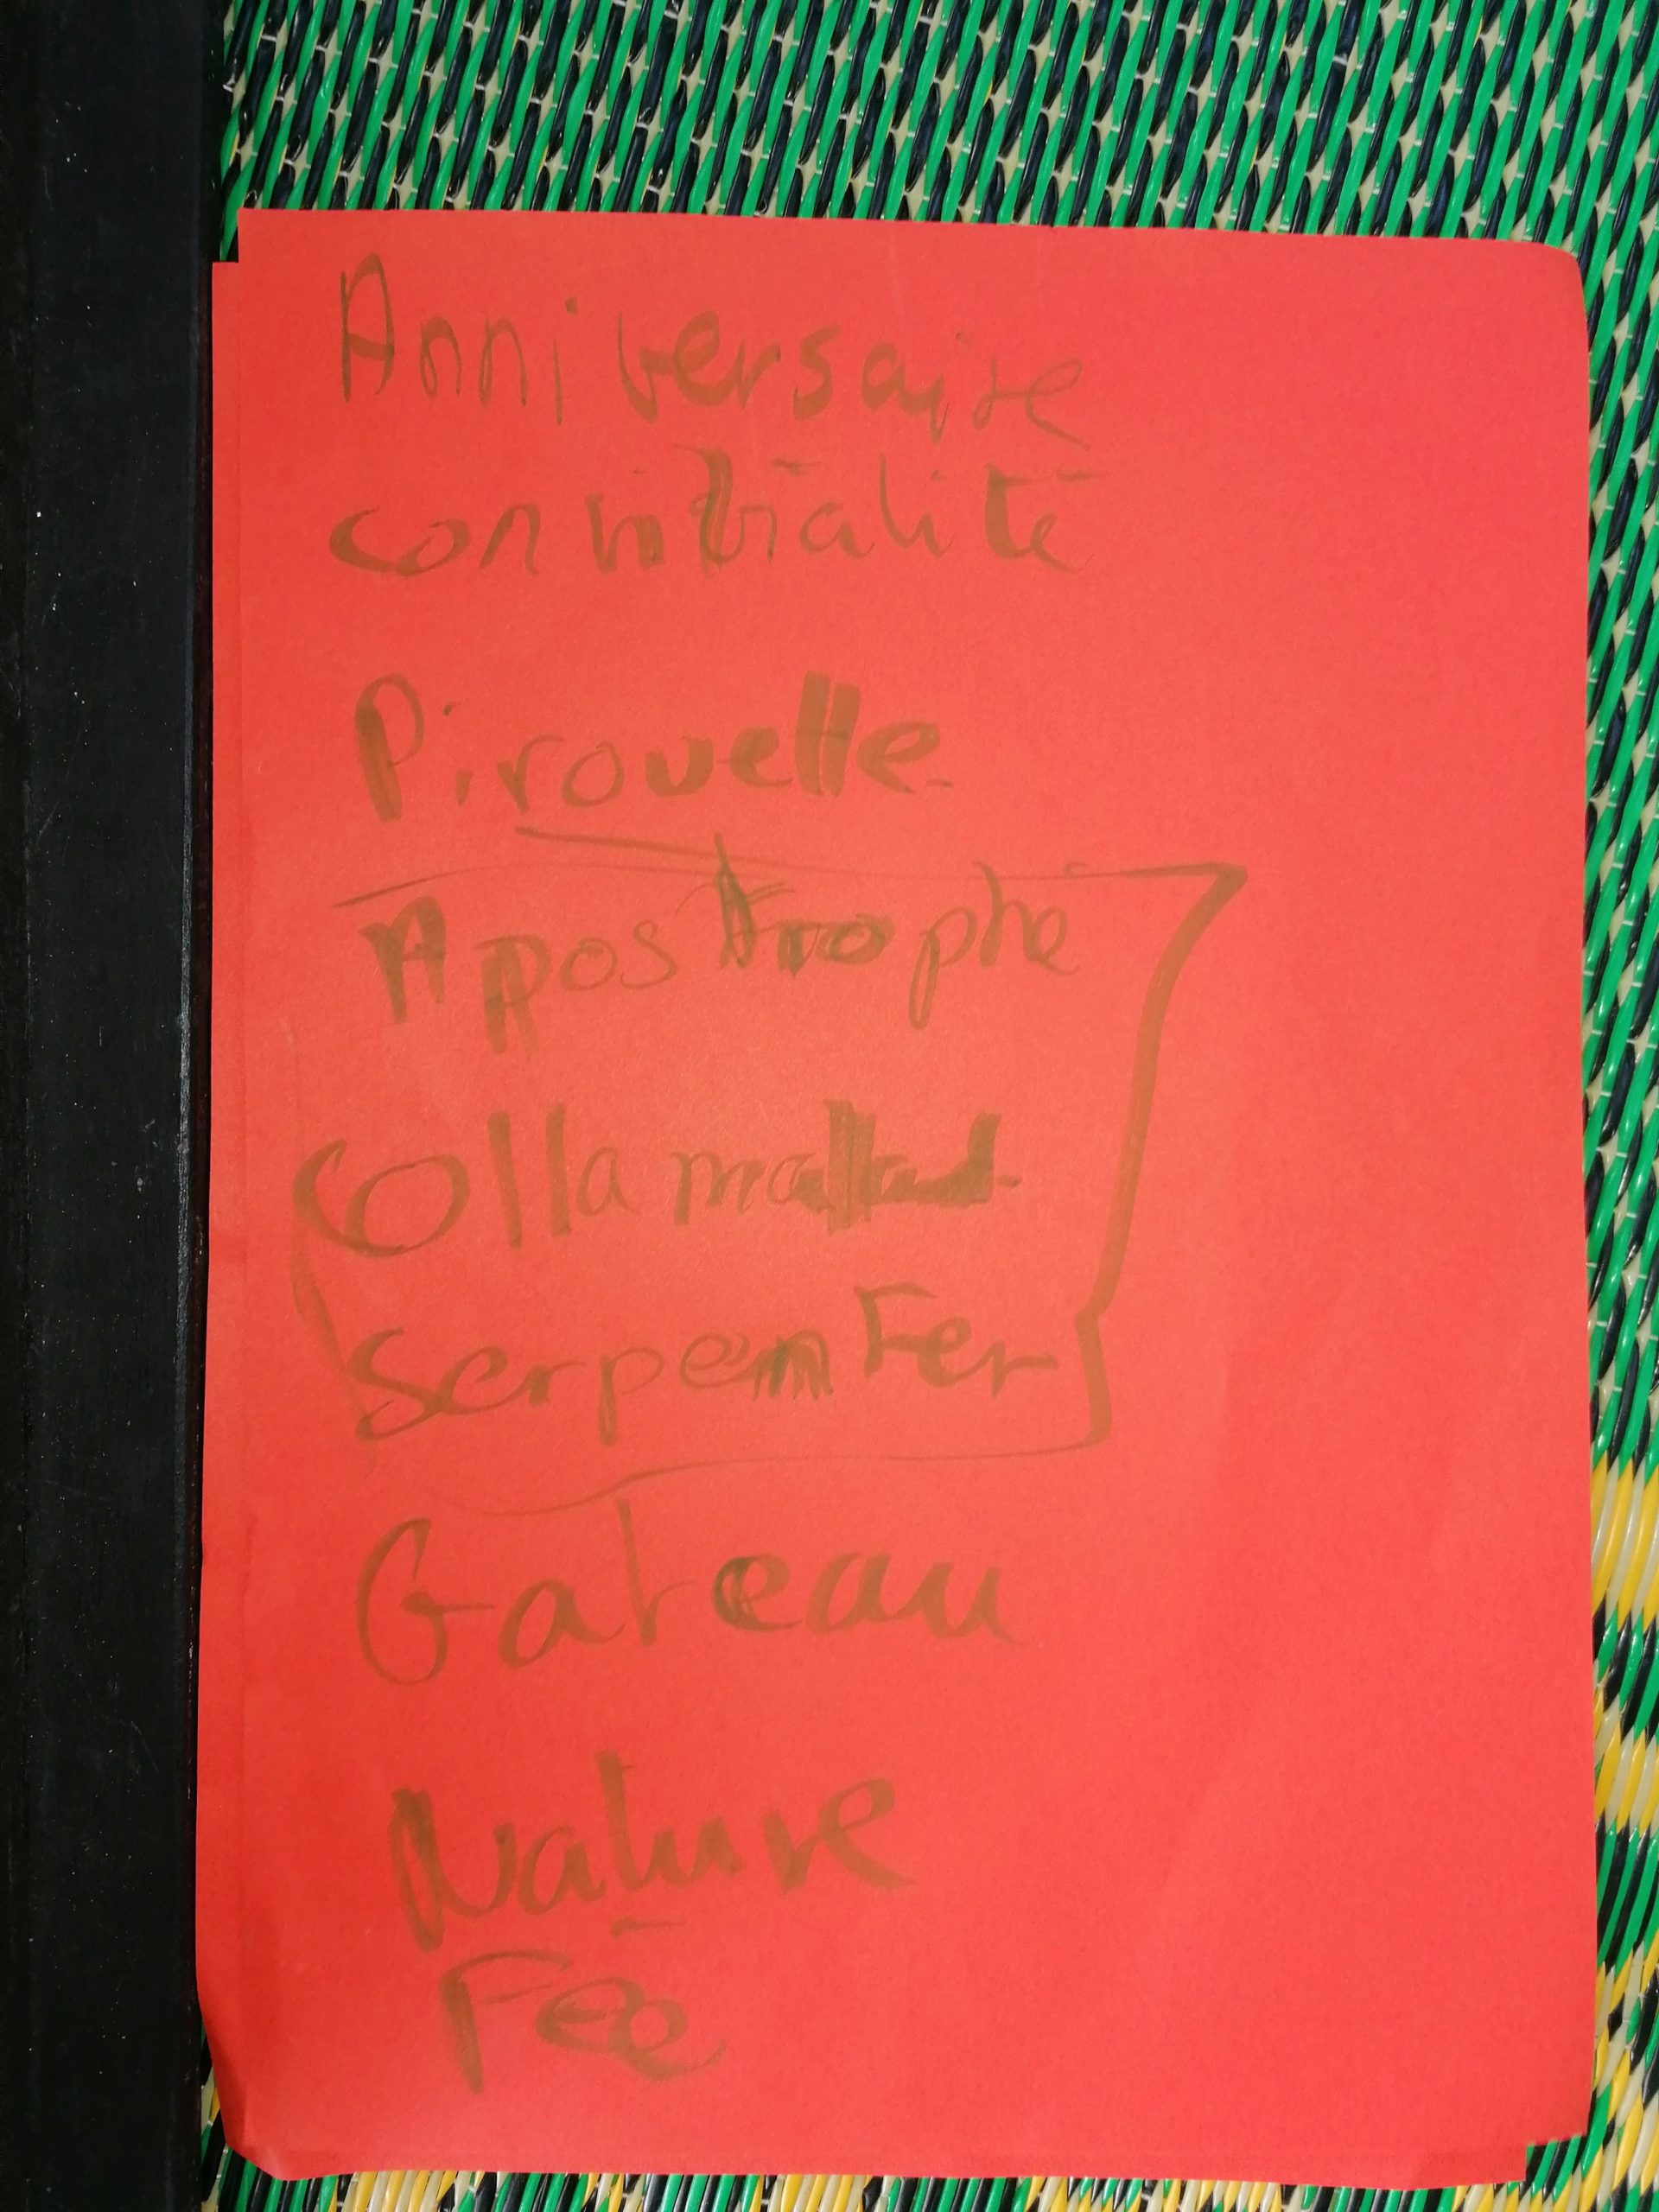 Anniversaire
convivialité
Pirouette
Apostrophe
Serpenter
Gateau
Nature
Fée